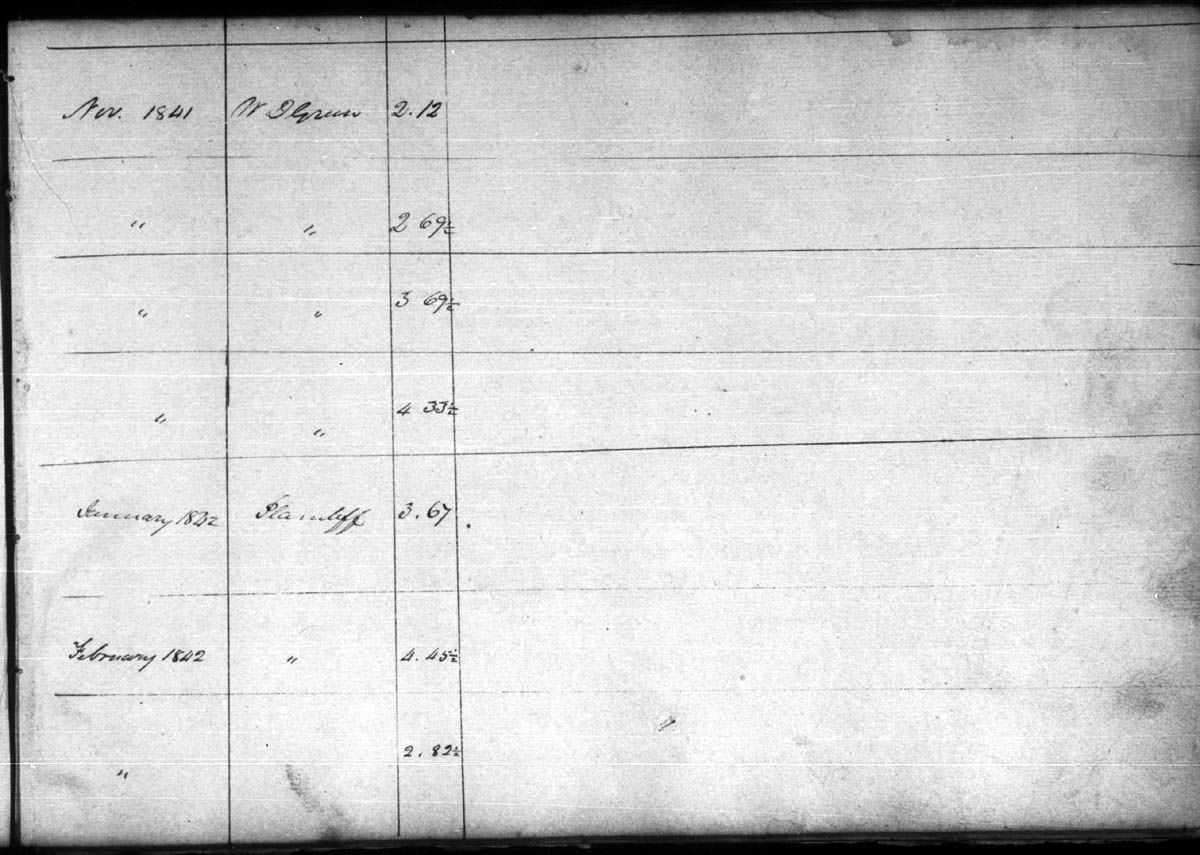 Nov. 1841 W D Green 2.12
" " 2 69½
" " 3 69½
" " 4 33½
January 1842 Plaintiff 3.67
February 1842 " 4.45½
" 2.82½